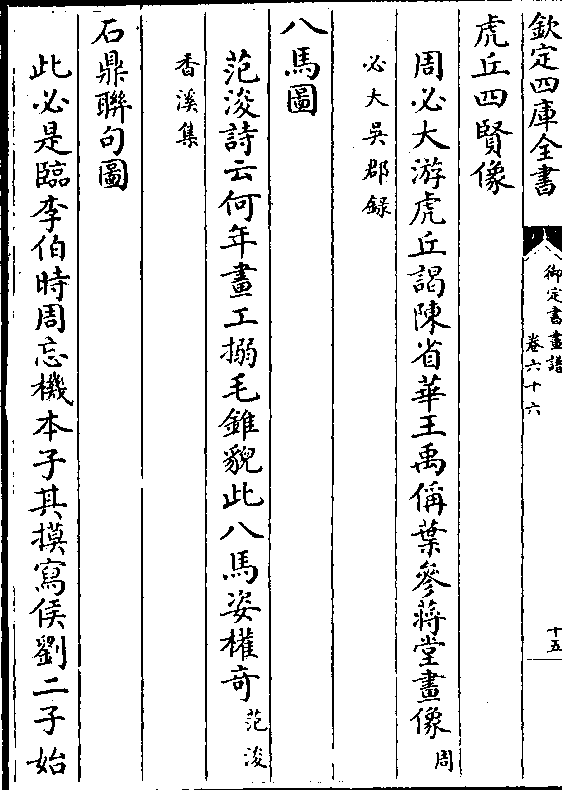 欽定四庫全書
御定書畫譜
卷六十六
十五
虎丘四賢像
周必大游虎丘謁陳省華王禹偁葉參蔣堂畫像周
必大吳郡録
八馬圖
范浚詩云何年畫工搦毛錐貌此八馬姿權奇范浚
香溪集
石鼎聯句圖
此必是臨李伯時周忘機本子其摸寫侯劉二子始